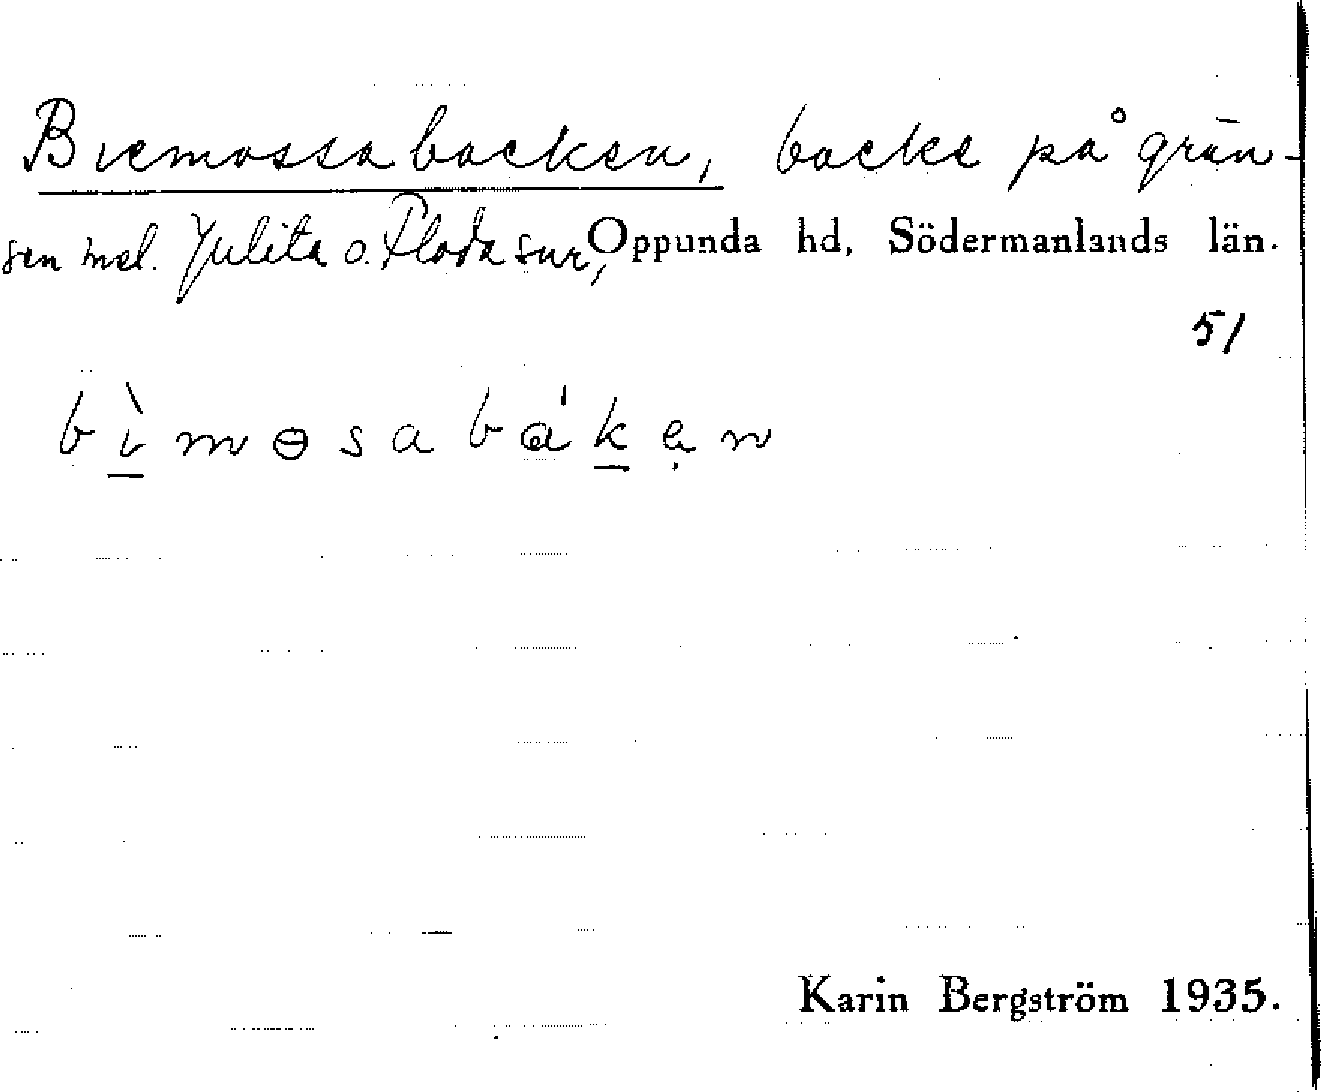 Biemossabacken, backe på grän-
sen mel. Julita o. Floda snr, Oppunda hd, Södermanlands län.
51
bìmɵsabákẹn
Karin Bergström 1935.